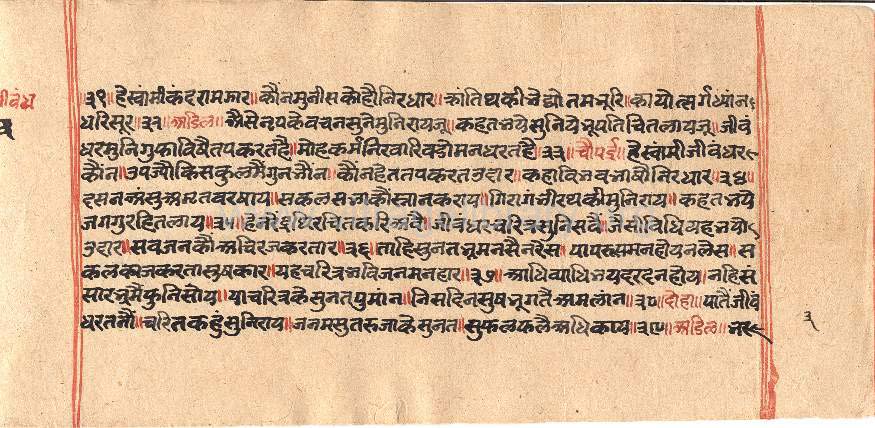 ॥३१॥ हेस्वामीकंदरामझार॥ कौंनमुनीसकहौनिरधार॥ क्रांतिथकीउद्योतमभूरि॥ कायोत्सर्गध्यांन
धरिसूर॥३२॥ अडिल॥ अैसेनृपकेवचनसुनेमुनिरायजू॥ कहतभयेसुनियेभूपतिचितलायजू॥ जीवं
धरमुनिगुफाविषैतपकरतहै॥ मोहकर्मनिरवारिबडोमनधरतहै॥३३॥ चौपई॥ हेस्वामीजीवंधर
कौंन॥ उपज्यौकिसकुलमैंगुनजौंन॥ कौंनहेततपकरतउदार॥ कहाविभवभाषौनिरधार॥३४॥
दसनअंसुअमतवरषाय॥ सकलसभाकौंस्नानकराय॥ गिरागंभीरथकीमुनिराय॥ कहतभये
जगगुरहितलाय॥३५॥ हेनरेंद्रथिरचितकरिअवै॥ जीवंधरचरित्रसुनिसवै॥ जिसीविधियहभयो
उदार॥ सवजनकौअचिरजकरतार॥३६॥ ताहिसुनतभूमनसैनरेस॥ पापरूपमनहोयनलेस॥ स
कलकाजकरतासुषकार॥ यहचरित्रभविजनमनहार॥३७॥ आधिव्याधिभयदरदनहोय॥ नहिसं
सारभ्रमैकुनिसोय॥ याचरित्रकेसुनतपुमांन॥ निसदिनसुषभूगतैअमलांन॥३८॥ दोहा॥ यातैंजीवं
धरतनौं॥ चरितकहुंसुनिराय॥ जनमसुतरुजाकेसुनत॥ सुफलफलैअधिकाय॥३९॥ अडिल॥ भर
३